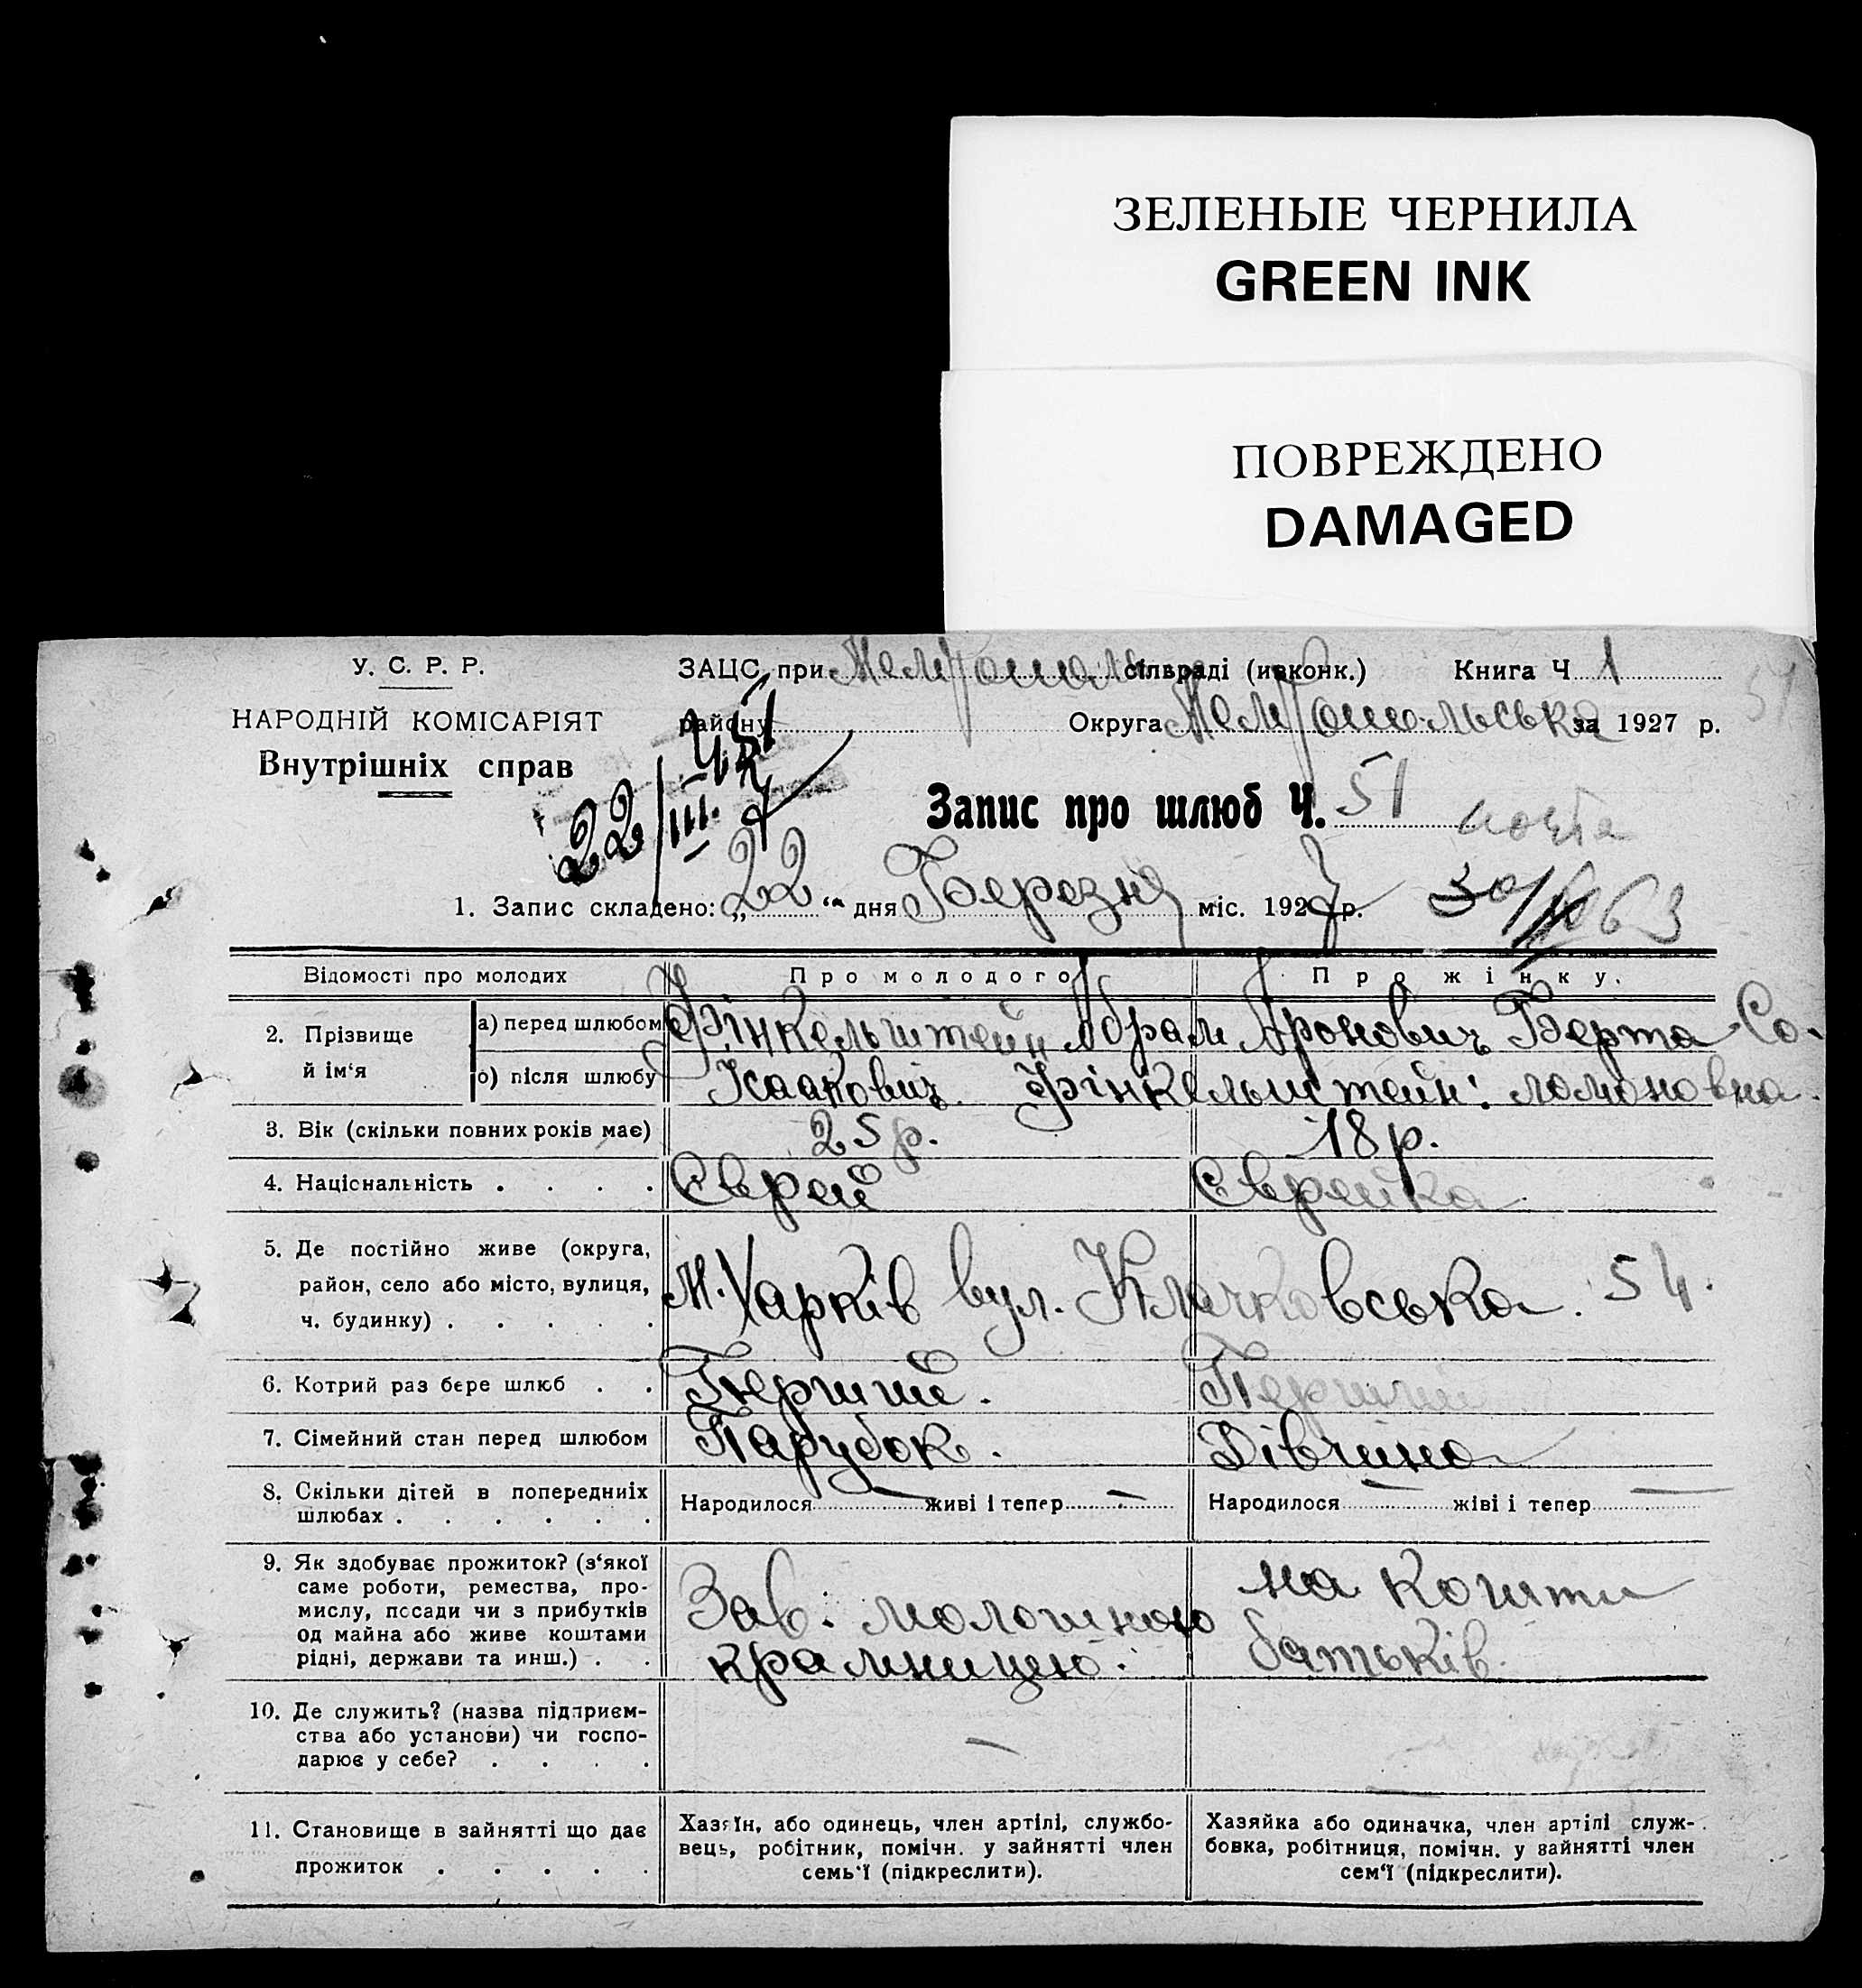 ЗЕЛЕНЫЕ ЧЕРНИЛА
GREEN INK
ПОВРЕЖДЕНО
DAMAGED
У. С. Р. Р.
НАРОДНІЙ КОМІСАРІЯТ
Внутрішніх справ
ЗАЦС при сільраді (ивконк.) Книга Ч 1
району Округа Мелітопольська за 1927 р.
22/III
Запис про шлюб Ч. 51
1. Запис складено: „22“ дня Березня міс. 1927 р.
Відомості про молодих
Про молодого
Про жінку.
2. Прізвище й ім‘я
а) перед шлюбом
о) після шлюбу
Фінкельштейн Абрам Аронович Берта Со-
Ісаакович Фінкельштейн: ломоновна.
3. Вік (скільки повних років має) 25 р. 18 р.
4. Національність . . . . Єврей Єврейка
5. Де постійно живе (округа,
район, село або місто, вулиця,
ч. будинку) . . . . .
М. Харків вул. Клочковська. 54.
6. Котрий раз бере шлюб . . Перший. Перший
7. Сімейний стан перед шлюбом Парубок. Дівчина
8. Скільки дітей в попередниіх
шлюбах . . . . . .
Народилося — живі і тепер —
Народилося — жіві і тепер —
9. Як здобуває прожиток? (з‘якої
саме роботи, ремества, про-
мислу, посади чи з прибутків
од майна або живе коштами
рідні, держави та инш.) . .
Зав. молошною
крамницею.
на кошти
батьків.
10. Де служить? (назва підприєм-
ства або установи) чи госпо-
дарює у себе? . . . .
—
11. Становище в зайнятті що дає
прожиток . . . . .
Хазяїн, або одинець, член артілі, службо-
вець, робітник, помічн. у зайнятті член
семь‘ї (підкреслити).
Хазяйка або одиначка, член артілі служ-
бовка, робітниця, помічн. у зайнятті член
сем‘ї (підкреслити).